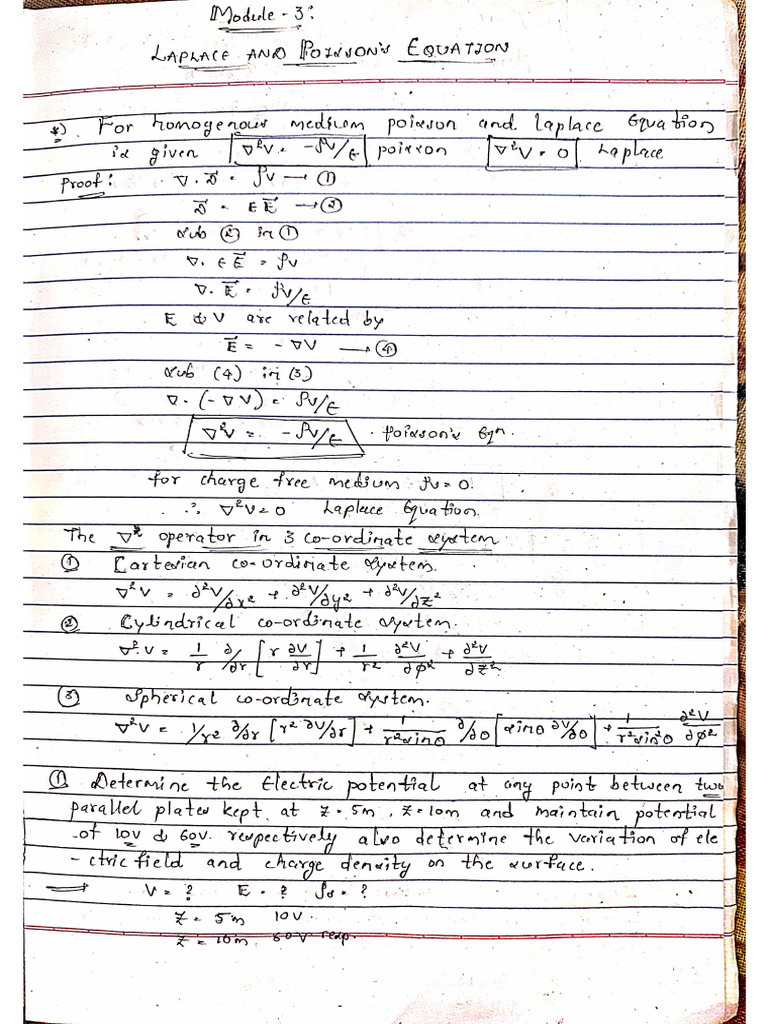 Module - 3:
LAPLACE AND POISSON'S EQUATION
*) For homogenous medium poisson and laplace Equation
is given ∇²V = -ρv/ε poisson ∇²V = 0 Laplace
Proof: ∇. D⃗ = ρv → ①
D⃗ = ε E⃗ → ②
sub ② in ①
∇. ε E⃗ = ρv
∇. E⃗ = ρv/ε
E & V are related by
E⃗ = - ∇V → ④
sub (4) in (3)
∇. (- ∇V) = ρv/ε
∇²V = - ρv/ε . Poisson's Eqn.
for charge free medium ρv = 0.
∴ ∇²V = 0 Laplace Equation.
The ∇² operator in 3 co-ordinate system
① Cartesian co-ordinate system.
∇²V = ∂²V/∂x² + ∂²V/∂y² + ∂²V/∂z²
② Cylindrical co-ordinate system.
∇².V = 1/r ∂/∂r [r ∂V/∂r] + 1/r² ∂²V/∂φ² + ∂²V/∂z²
③ Spherical co-ordinate system.
∇²V = 1/r² ∂/∂r [r² ∂V/∂r] + 1/r²sinθ ∂/∂θ [sinθ ∂V/∂θ] + 1/r²sin²θ ∂²V/∂φ²
① Determine the Electric potential at any point between two
parallel plates kept at z = 5m, z = 10m and maintain potential
of 10V & 60V. respectively also determine the variation of ele
-ctric field and charge density on the surface.
→ V = ? E = ? ρs = ?
z = 5m 10V.
z = 10m 60V resp.